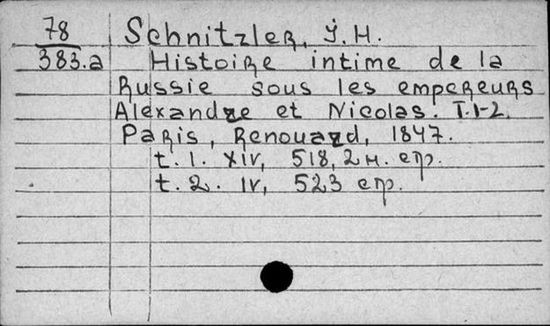 78 Schnitzler, J.H.
383.a Histoire intime de la
Russie sous les empereurs
Alexandre et Nicolas. T.1-2.
Paris, Renouard, 1847.
t. 1. XIV, 518, 2 н. стр.
t. 2. IV, 523 стр.